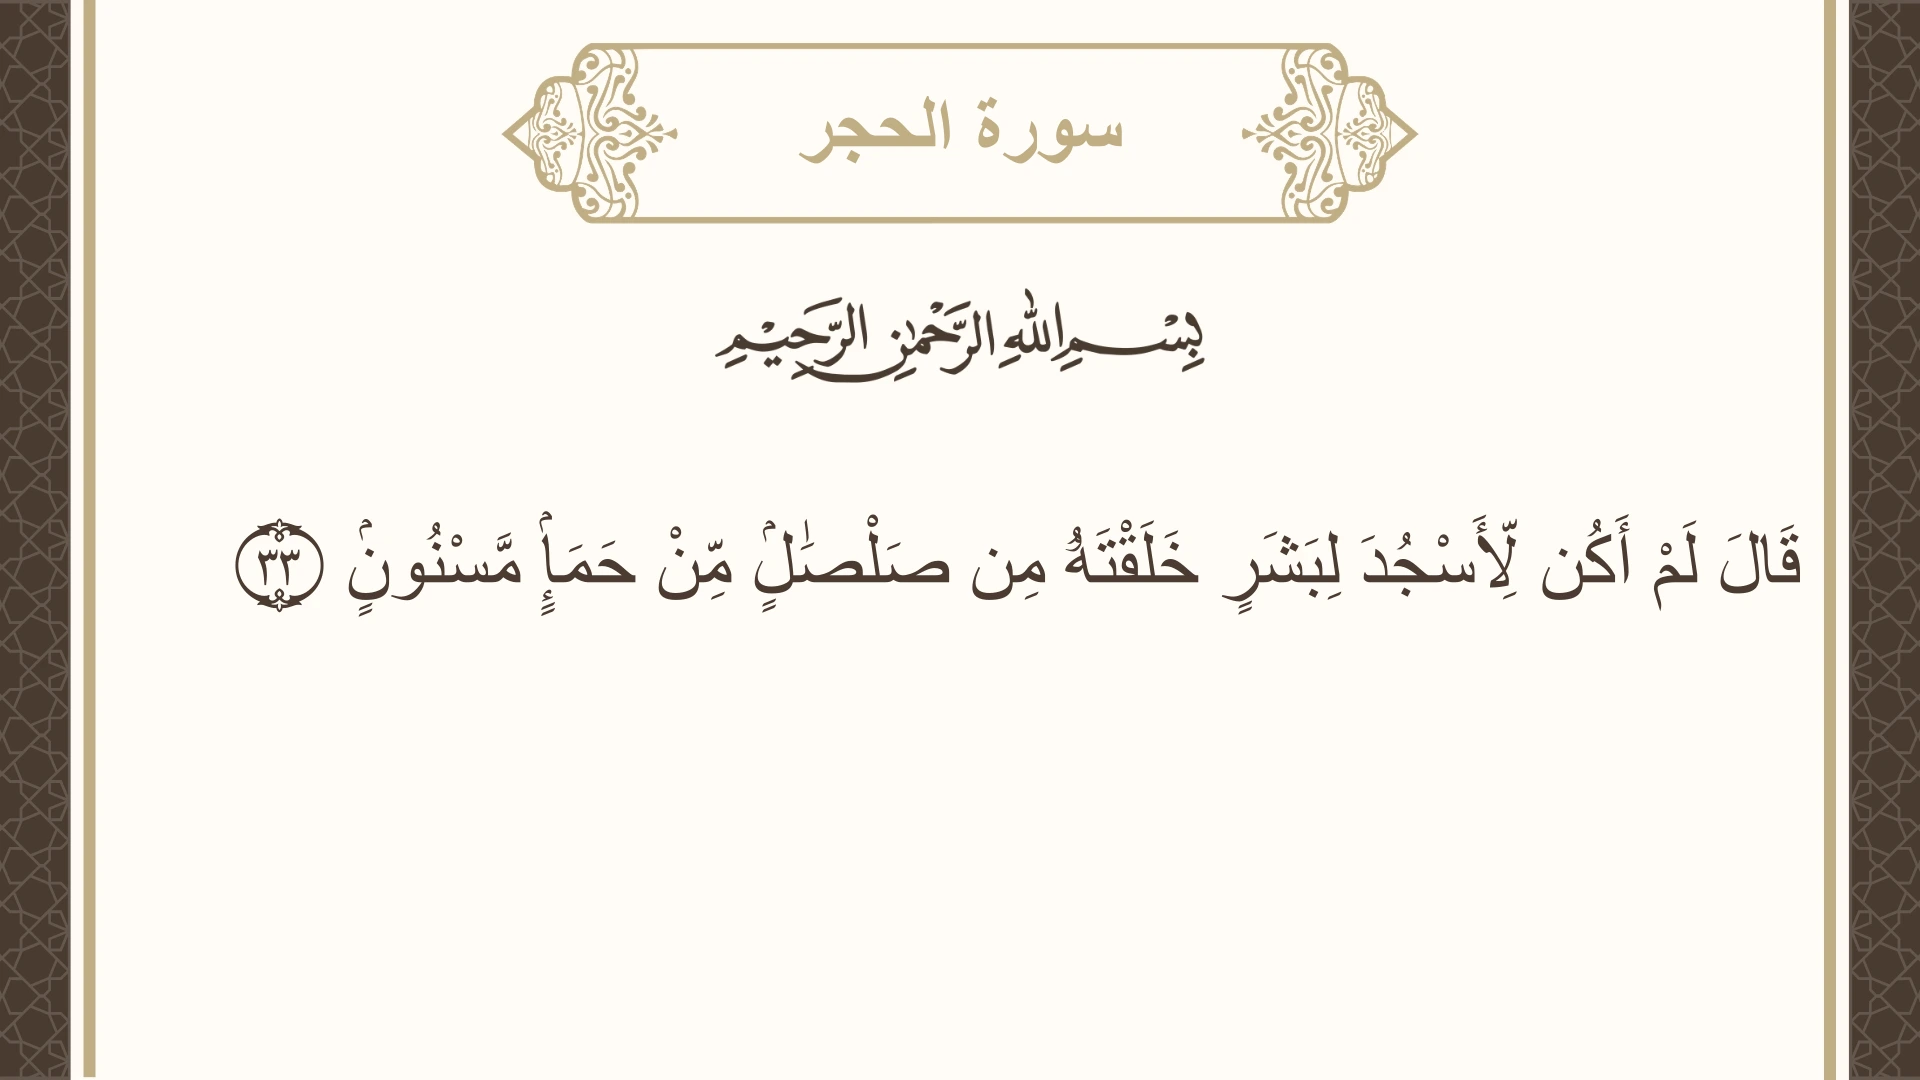 سورة الحجر
بِسْمِ اللهِ الرَّحْمٰنِ الرَّحِيْمِ
قَالَ لَمْ أَكُن لِّأَسْجُدَ لِبَشَرٍ خَلَقْتَهُۥ مِن صَلْصَٰلٍۢ مِّنْ حَمَإٍۢ مَّسْنُونٍۢ ٣٣